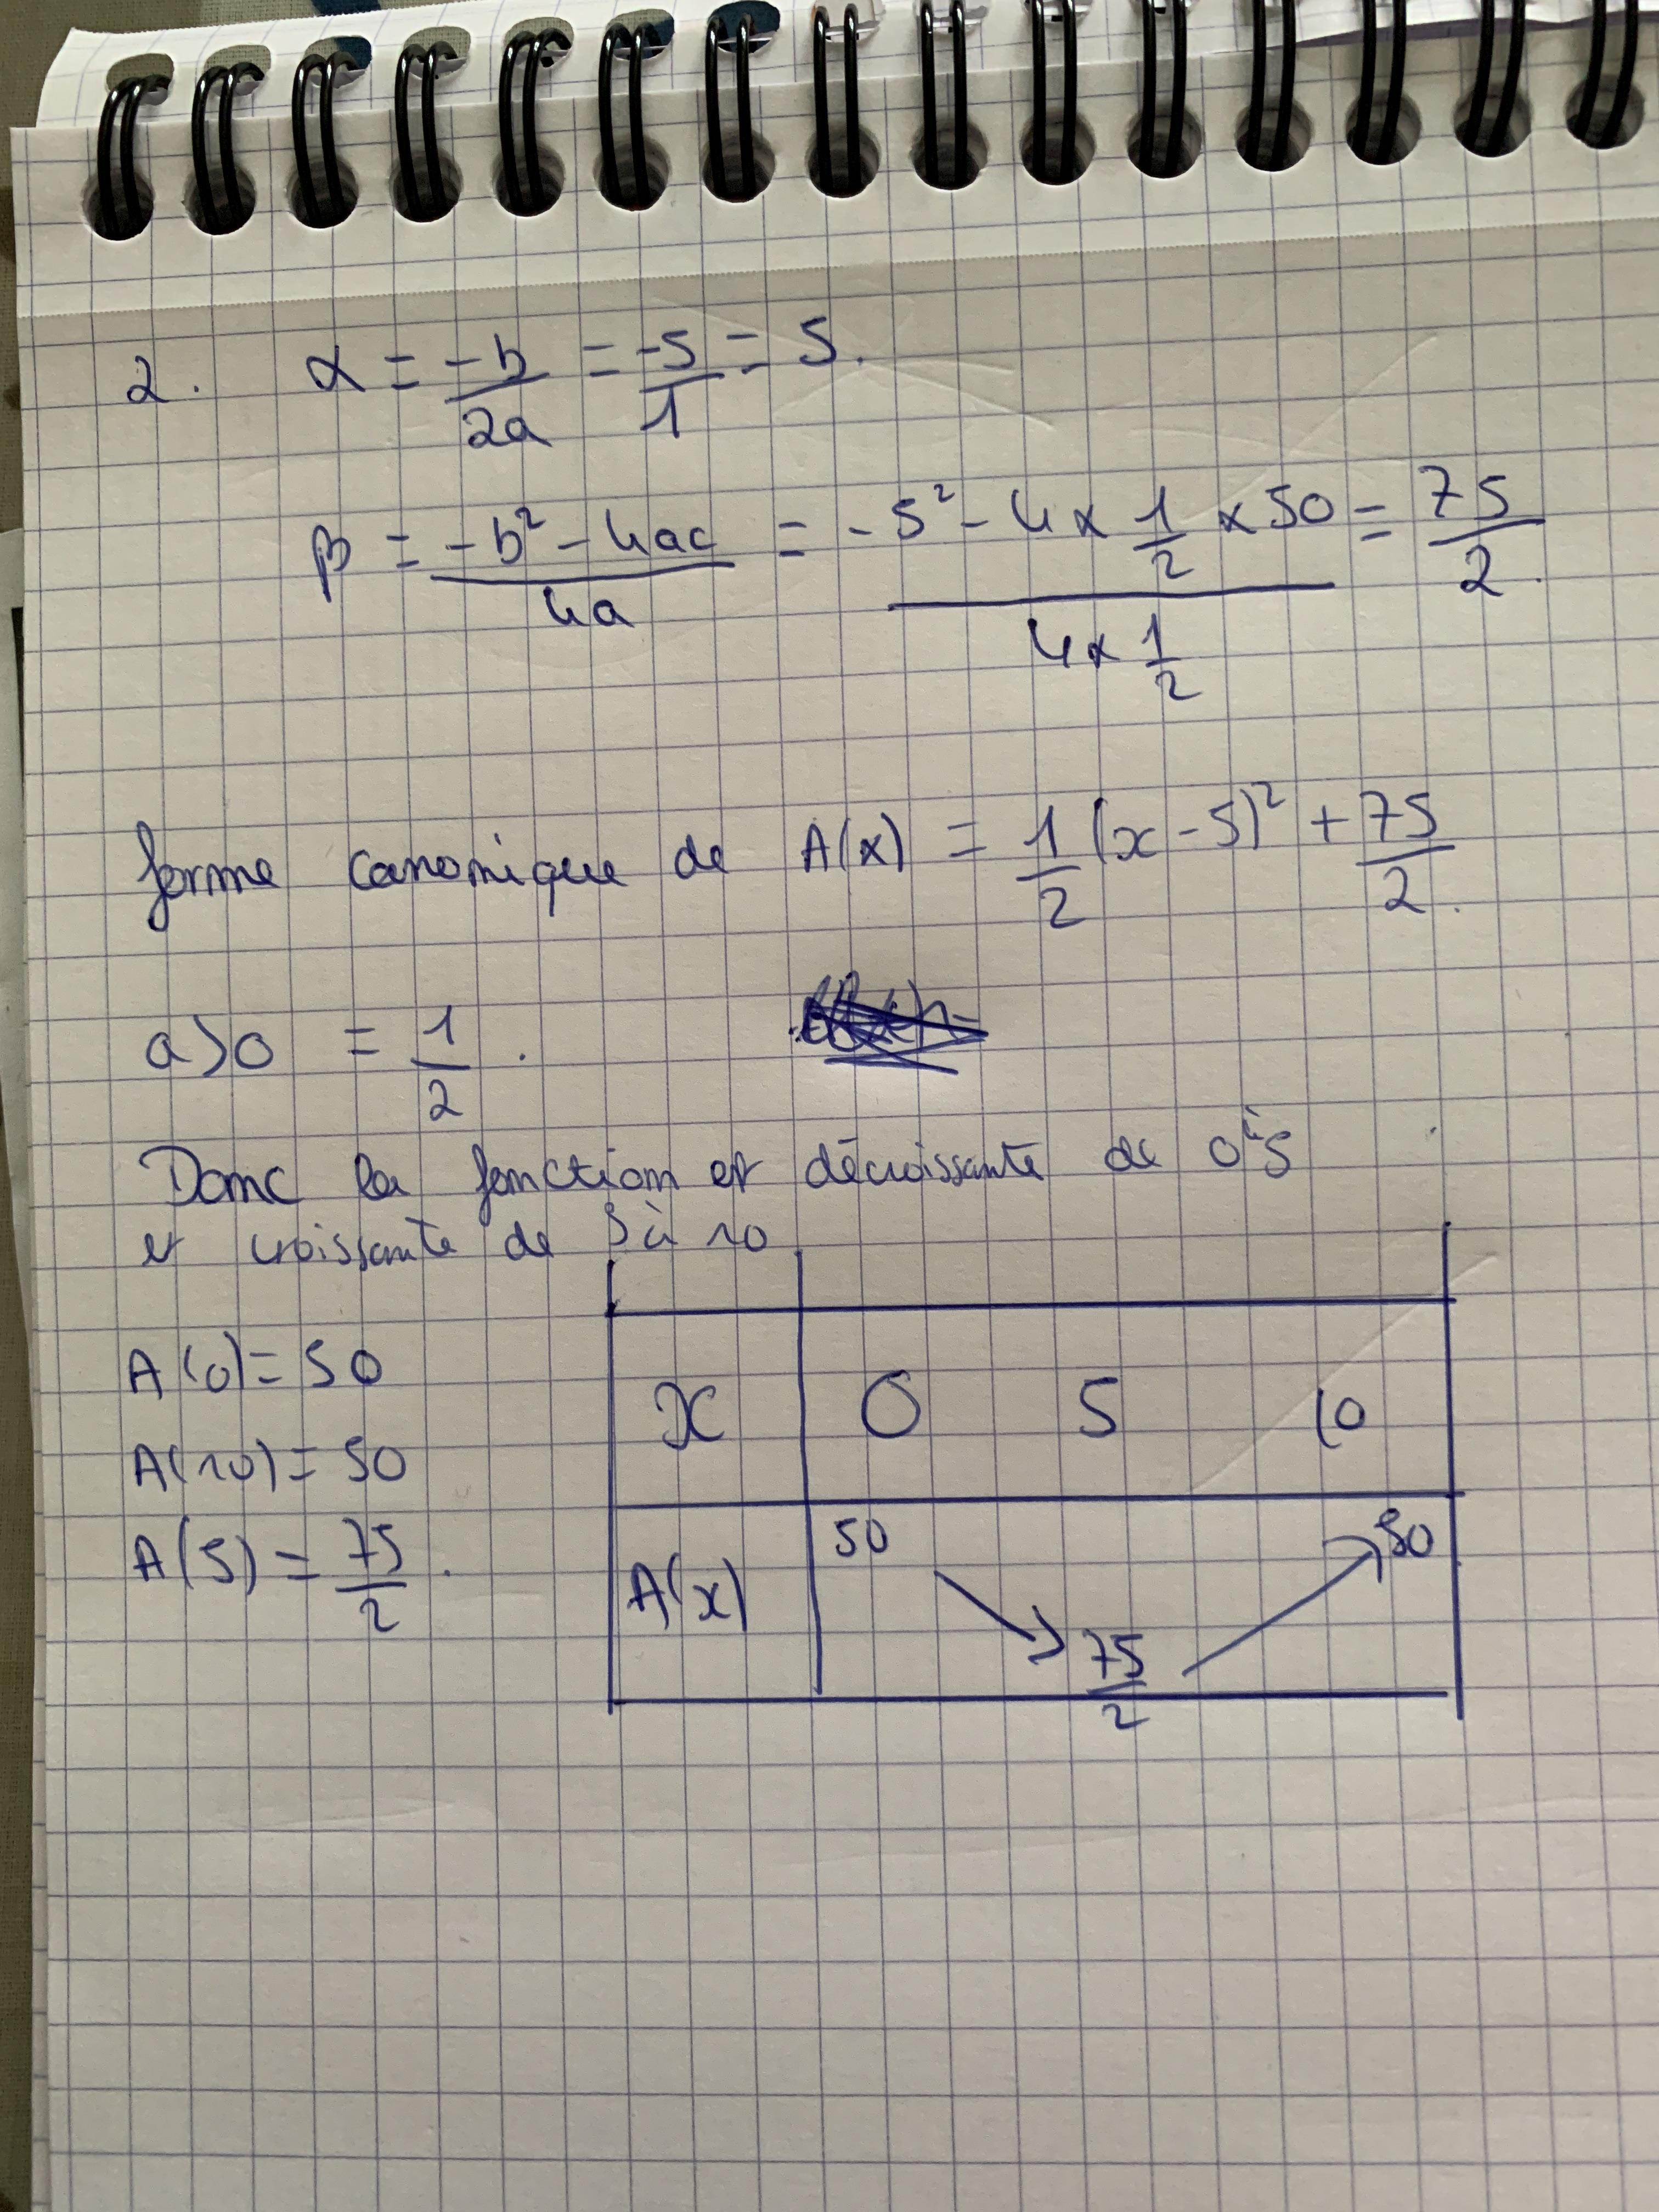 2. α = -b/2a = -5/1 = 5.
β = -b² - 4ac / 4a = -5² - 4 x 1/2 x 50 / 4 x 1/2 = 75/2.
forme canonique de A(x) = 1/2 (x - 5)² + 75/2.
a>0 = 1/2.
Donc la fonction est décroissante de 0 à 5
et croissante de 5 à 10
A(0) = 50
A(10) = 50
A(5) = 75/2.
x 0 5 10
A(x) 50 ↘ 75/2 ↗ 50